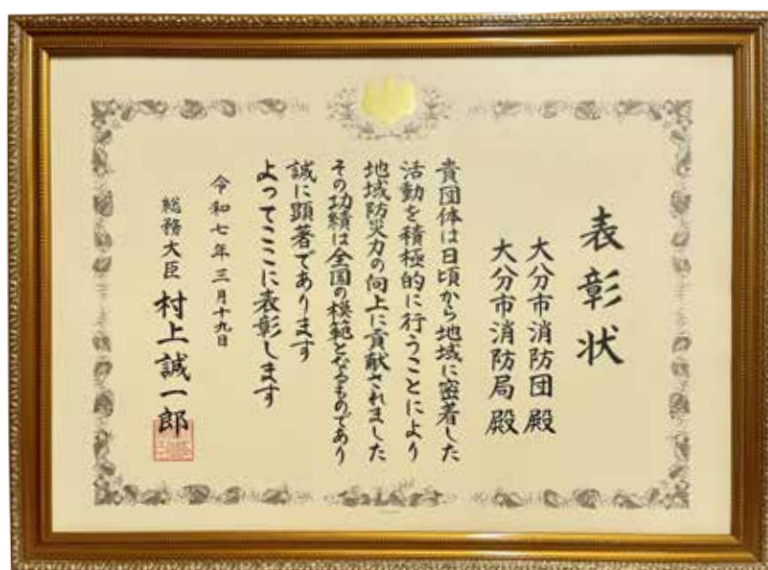 表彰状
大分市消防団殿
大分市消防局殿
貴団体は日頃から地域に密着した
活動を積極的に行うことにより
地域防災力の向上に貢献されました
その功績は全国の模範となるものであり
誠に顕著であります
よってここに表彰します
令和七年三月十九日
総務大臣 村上誠一郎